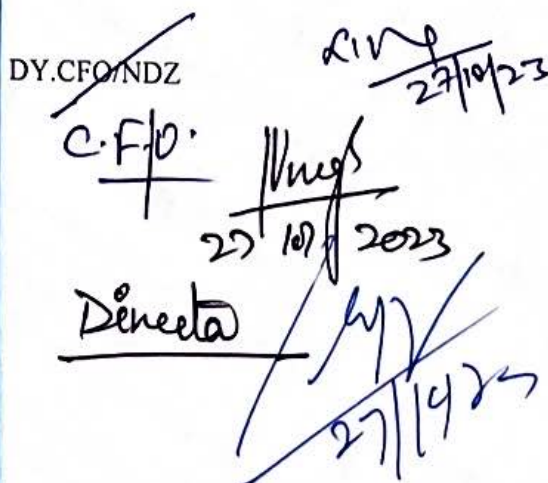 DY.CFO/NDZ
27/10/23
C.F.O.
27 10 2023
Director
27/10/23